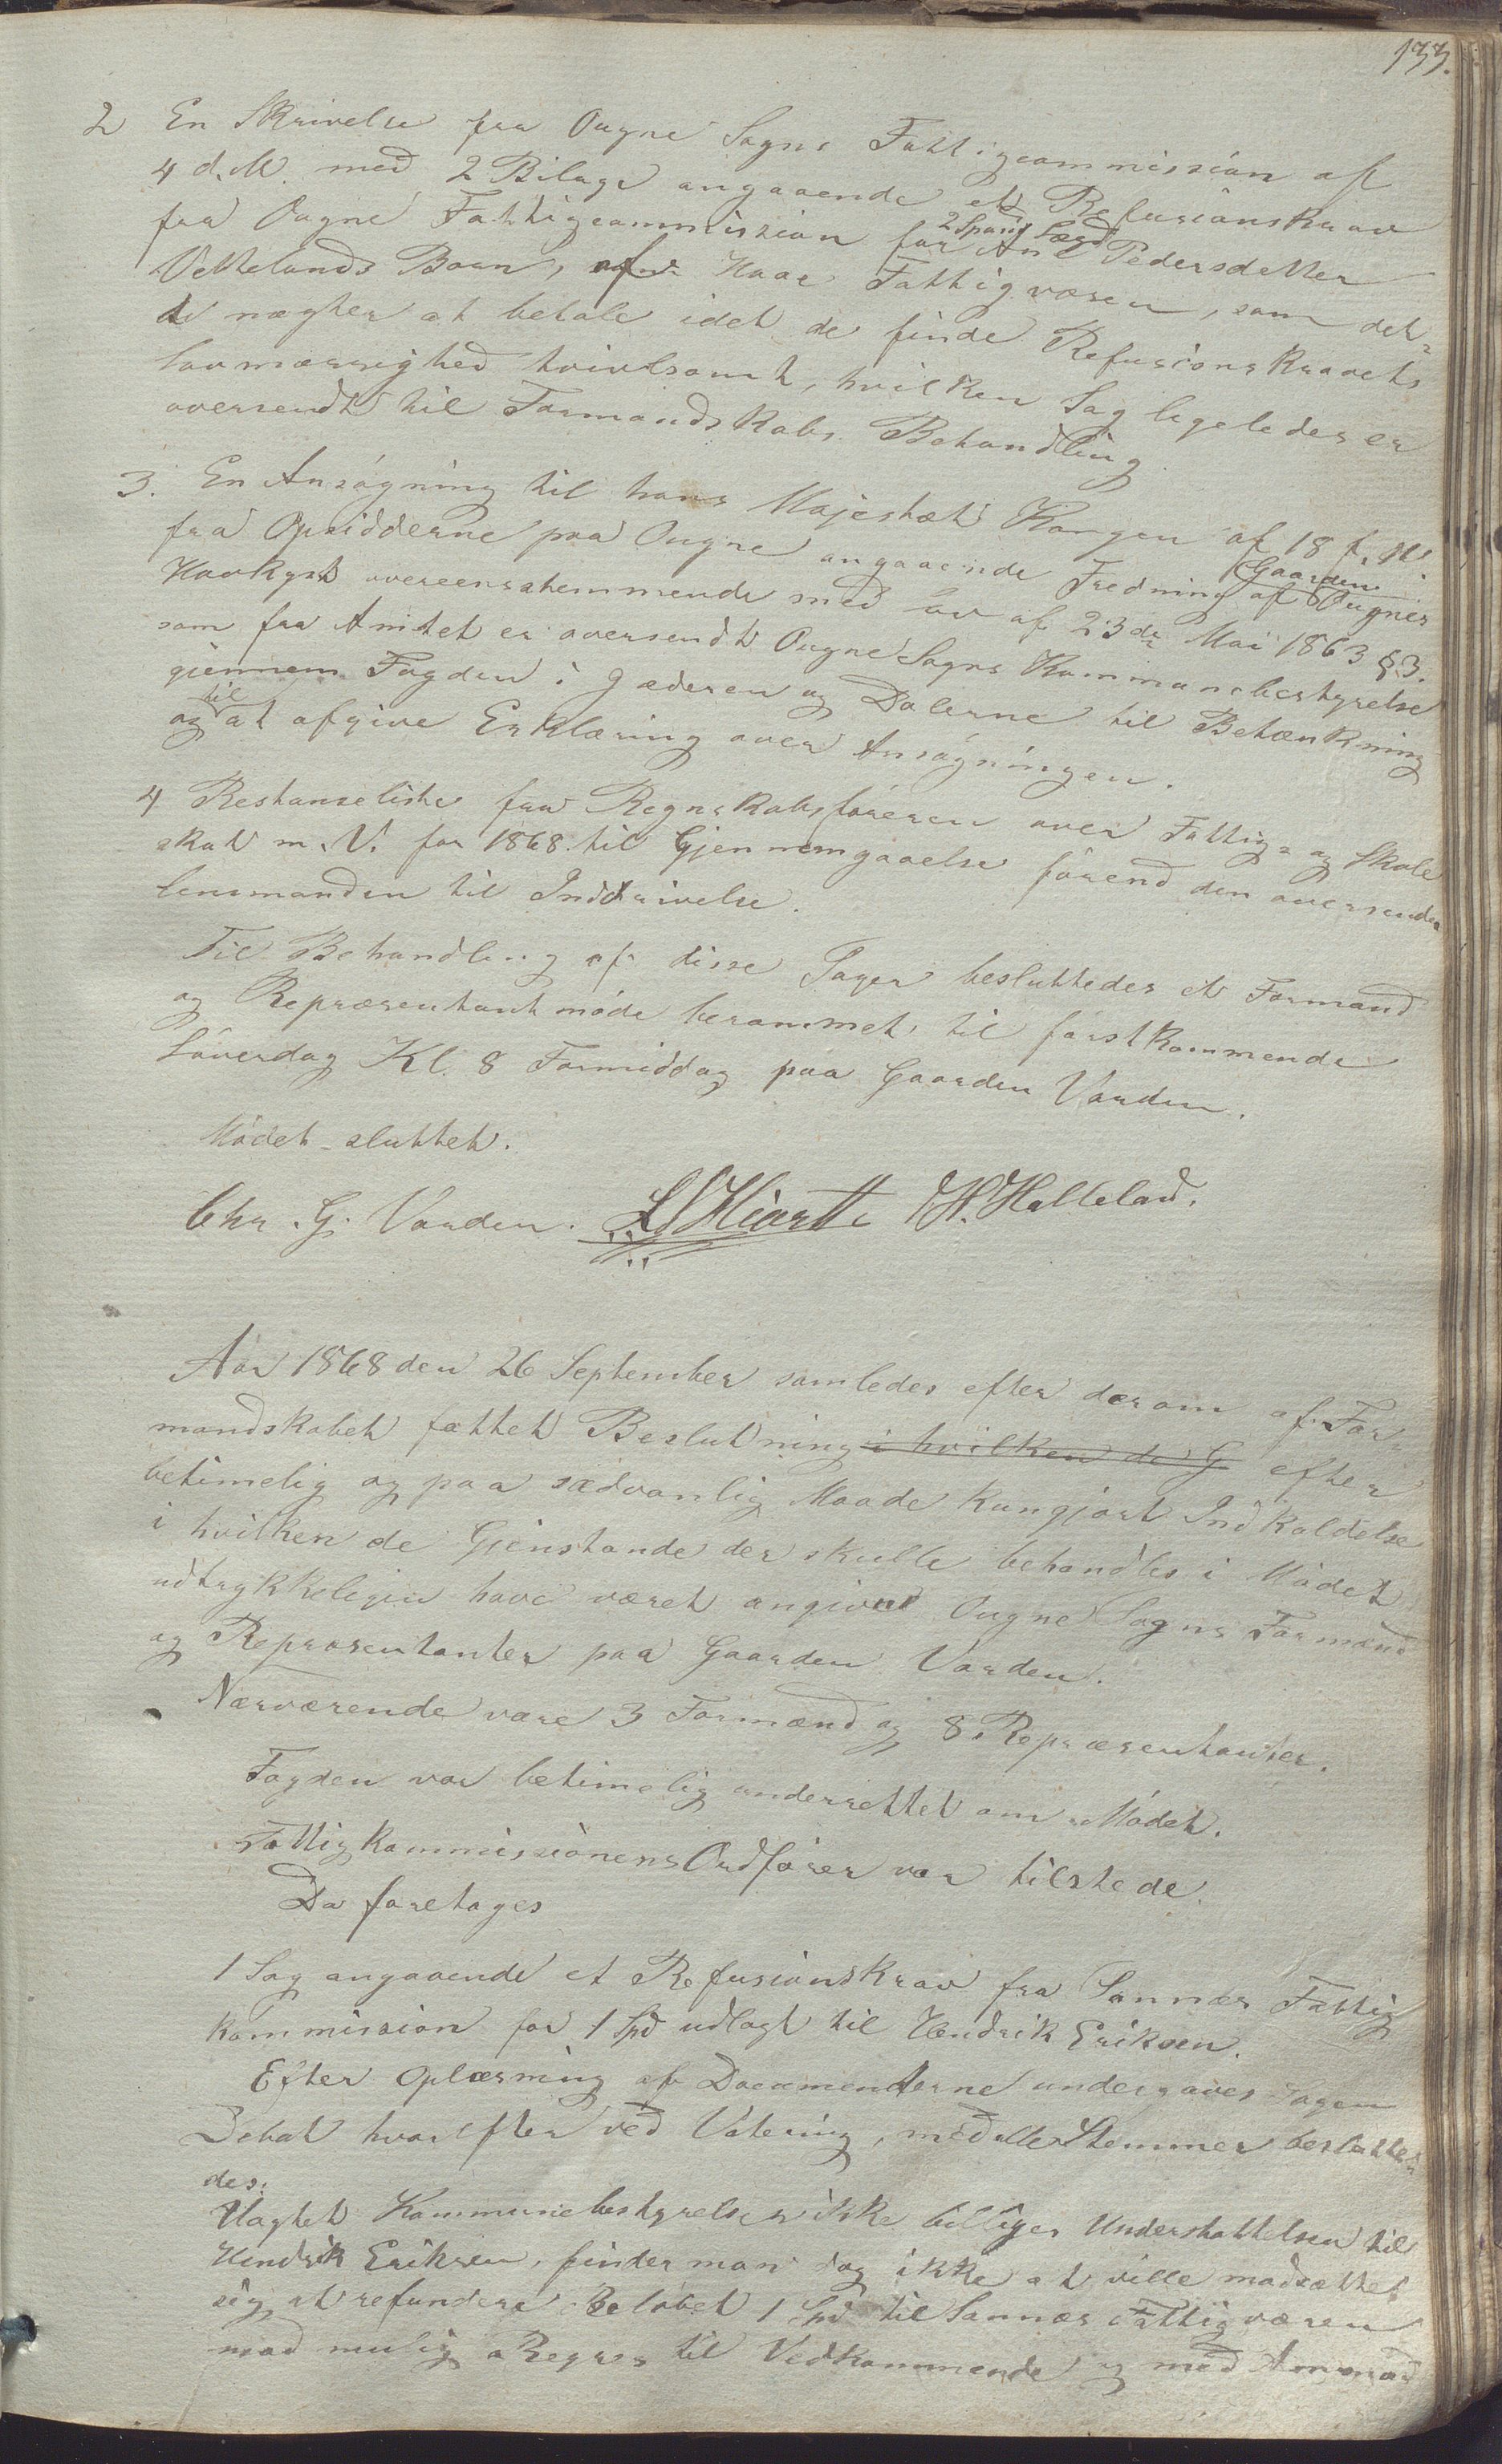 133.
2 En Skrivelse fra Ougne Sogns Fattigcommission af
4 d. M. med 2 Bilage angaaende et Refusionskrav
fra Ougne Fattigcommission for 2 Spand Sæd Ane Pedersdatter
Vettelands Barn, af Haae Fattigvæsen, som det
de nægter at betale idet de finde Refusionskravets
lovmæssighed tvivlsomt, hvilken Sag ligeledes er
oversendt til Formandskabs Behandling
3. En Ansøgning til hans Majestæt Kongen af 18 f. M.
fra Opsidderne paa Ougne angaaende Fredning af Gaarden Ougnes
Havkyst overeensstemmende med lov af 23de Mai 1863 §3.
som fra Amtet er oversendt Ougne Sogns Kommunebestyrelse
gjennem Fogden i Jæderen og Dalerne til Betænkning
og til at afgive Erklæring over Ansøgningen.
4 Restanseliste fra Regnskabsføreren over Fattig- og Skole
skat m. V. for 1868 til Gjennemgaaelse førend den oversendes
lensmanden til Inddrivelse.
Til Behandling af disse Sager besluttedes et Formand
og Repræsentantmøde berammet til førstkommende
Løverdag Kl. 8 Formiddag paa Gaarden Varden.
Mødet sluttet.
Chr. G. Varden. L Hiortt H. Hatteland.
Aar 1868 den 26 September samledes efter derom af For-
mandskabet fattet Beslutning i hvilken de G efter
betimelig og paa sædvanlig Maade kungjort Indkaldelse
i hvilken de Gjenstande der skulle behandles i Mødet
udtrykkeligen have været angivne Ougne Sogns Formænd
og Repræsentanter paa Gaarden Varden.
Nærværende vare 3 Formænd og 8 Repræsentanter.
Fogden var betimelig underrettet om Mødet.
Fattigkommissionens Ordfører var tilstede.
Da foretages
1 Sag angaaende et Refusionskrav fra Sannæs Fattig
kommission for 1 Spd udlagt til Hendrik Eriksen.
Efter Oplæsning af Documenterne undergaves Sagen
Debat hvorefter ved Votering, med alle Stemmer beslutte-
des:
Uagtet Kommunebestyrelsen ikke billiger Understøttelsen til
Hendrik Eriksen, finder man dog ikke at ville modsætte
sig at refundere Beløbet 1 Spd til Sannæs Fattigvæsen
mod mulig Regres til Vedkommende og med Anmod